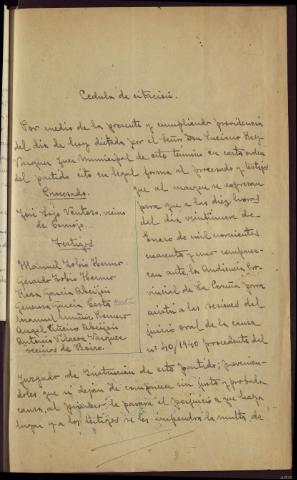 Cedula de citación.
Por medio de la presente y cumpliendo providencia
del dia de hoy dictada por el Señor Don Luciano Rey
Vazquez Juez Municipal de este termino en carta orden
del partido cito en legal forma al procesado y testigos
que al margen se expresan
Procesado.
para que a las diez horas
José Ventoso, vecino
del dia veintinueve de
de
Enero de mil novecientos
Testigos
cuarenta y uno comparez-
Manuel Tobio
can ante la Audiencia Pro-
Gerardo Tobio
vincial de la Coruña para
Rosa Garcia
asistir a las sesiones del
Generosa Garcia
juicio oral de la causa
Manuel
nº 40/1940 procedente del
Angel Piñeiro
Antonio Vazquez
vecinos de
Juzgado de Instrucción de este partido; previnien-
doles que si dejan de comparecer sin justa y probada
causa, al procesado le parará el perjuicio a que haya
lugar y a los testigos se les impondrá la multa de